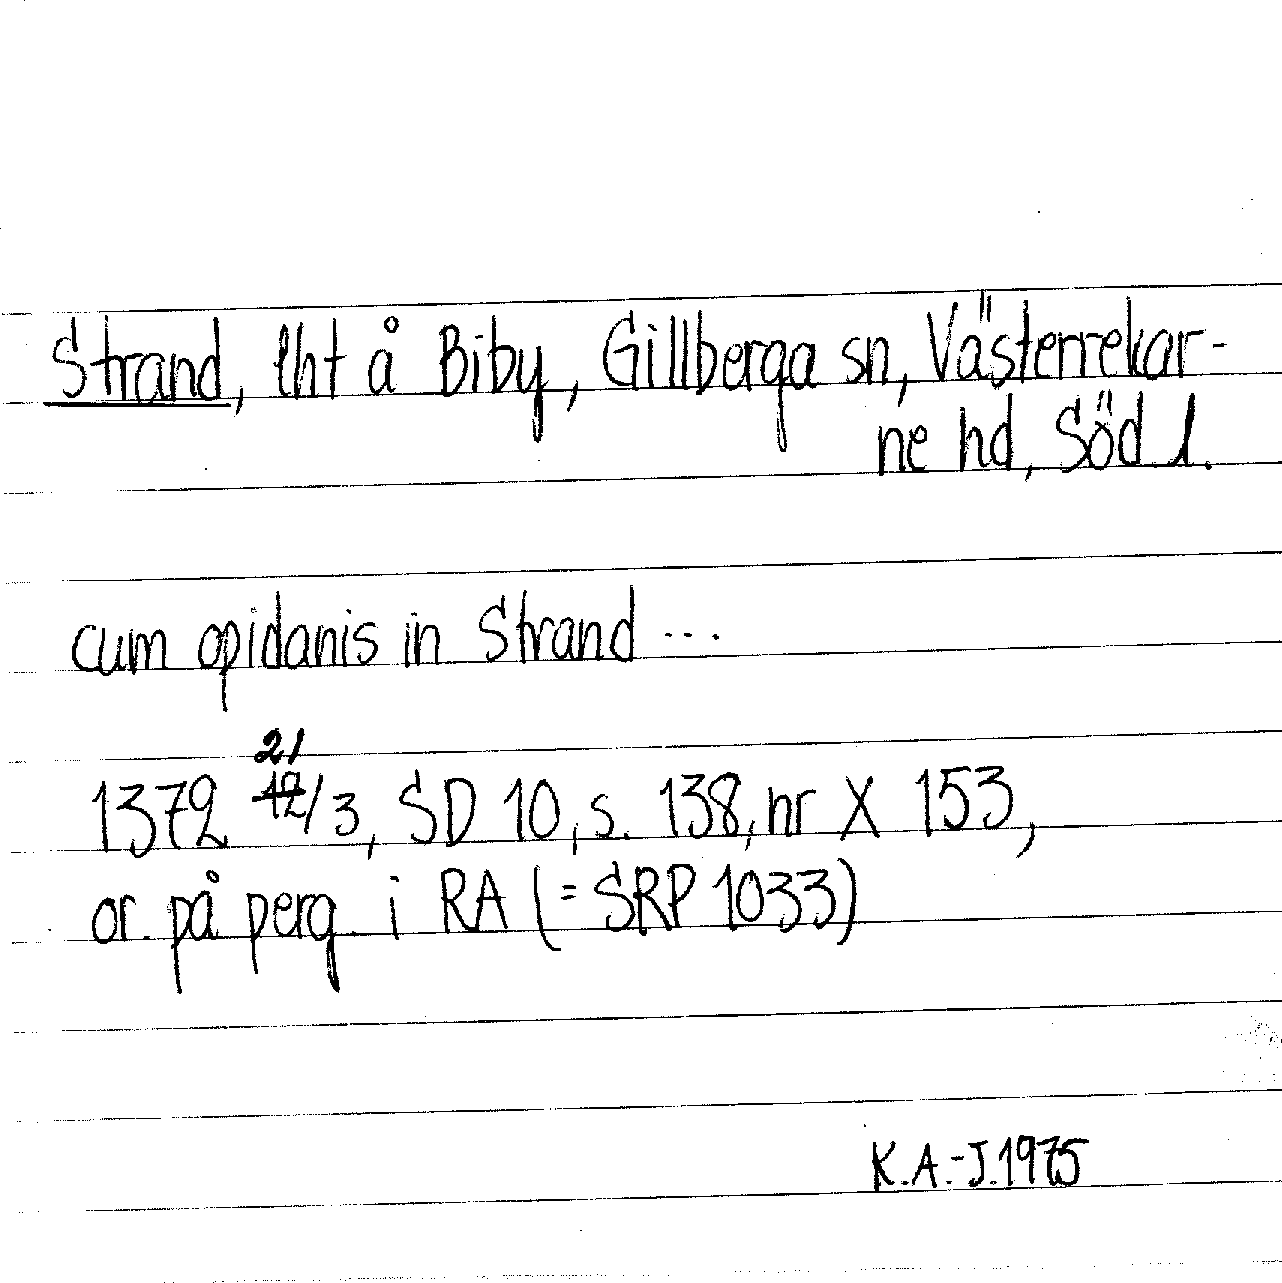 Strand, lht å Biby, Gillberga sn, Västerrekar-
ne hd, Söd l.
cum opidanis in Strand ...
21
1372 12/3, SD 10, s. 138, nr X 153,
or. på perg. i RA (= SRP 1033)
K.A.-J. 1975